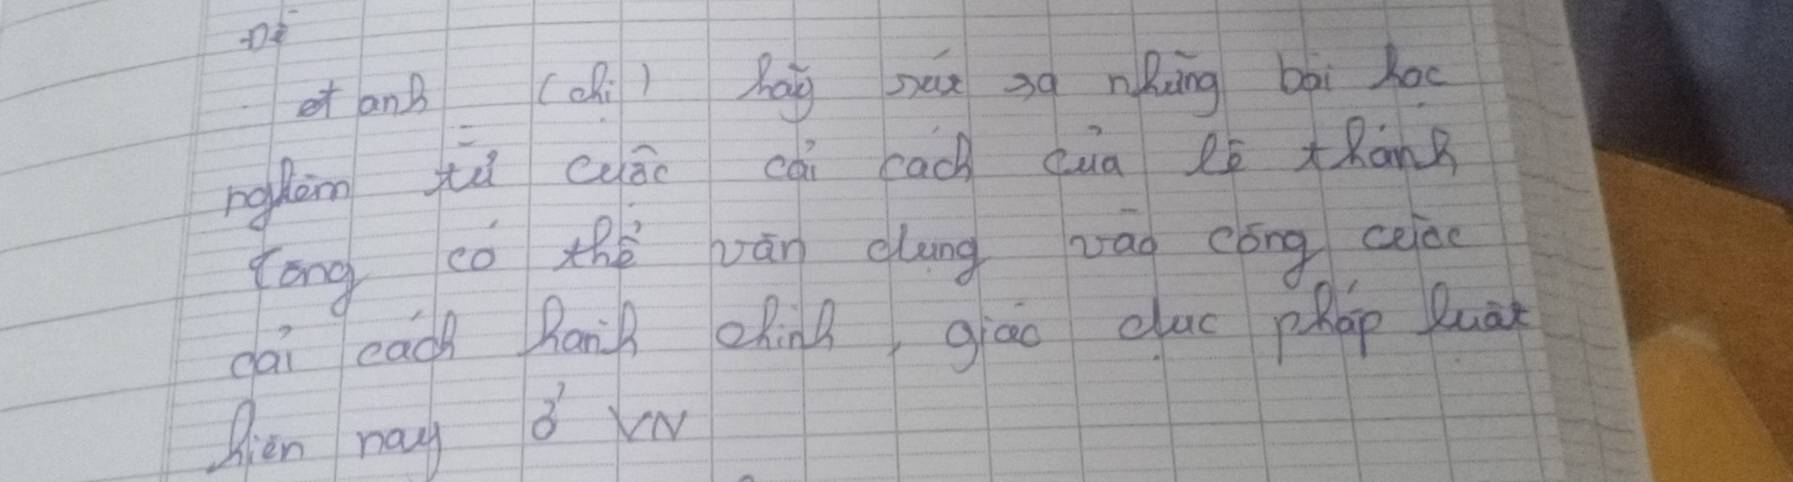 et anh (chị) hãy rút ra những bài học
nghiệm từ cuộc cải cách của Lê thánh
tông có thể vận dụng vào công cuộc
cải cách hành chính, giáo dục pháp luật
hiện nay ở VN